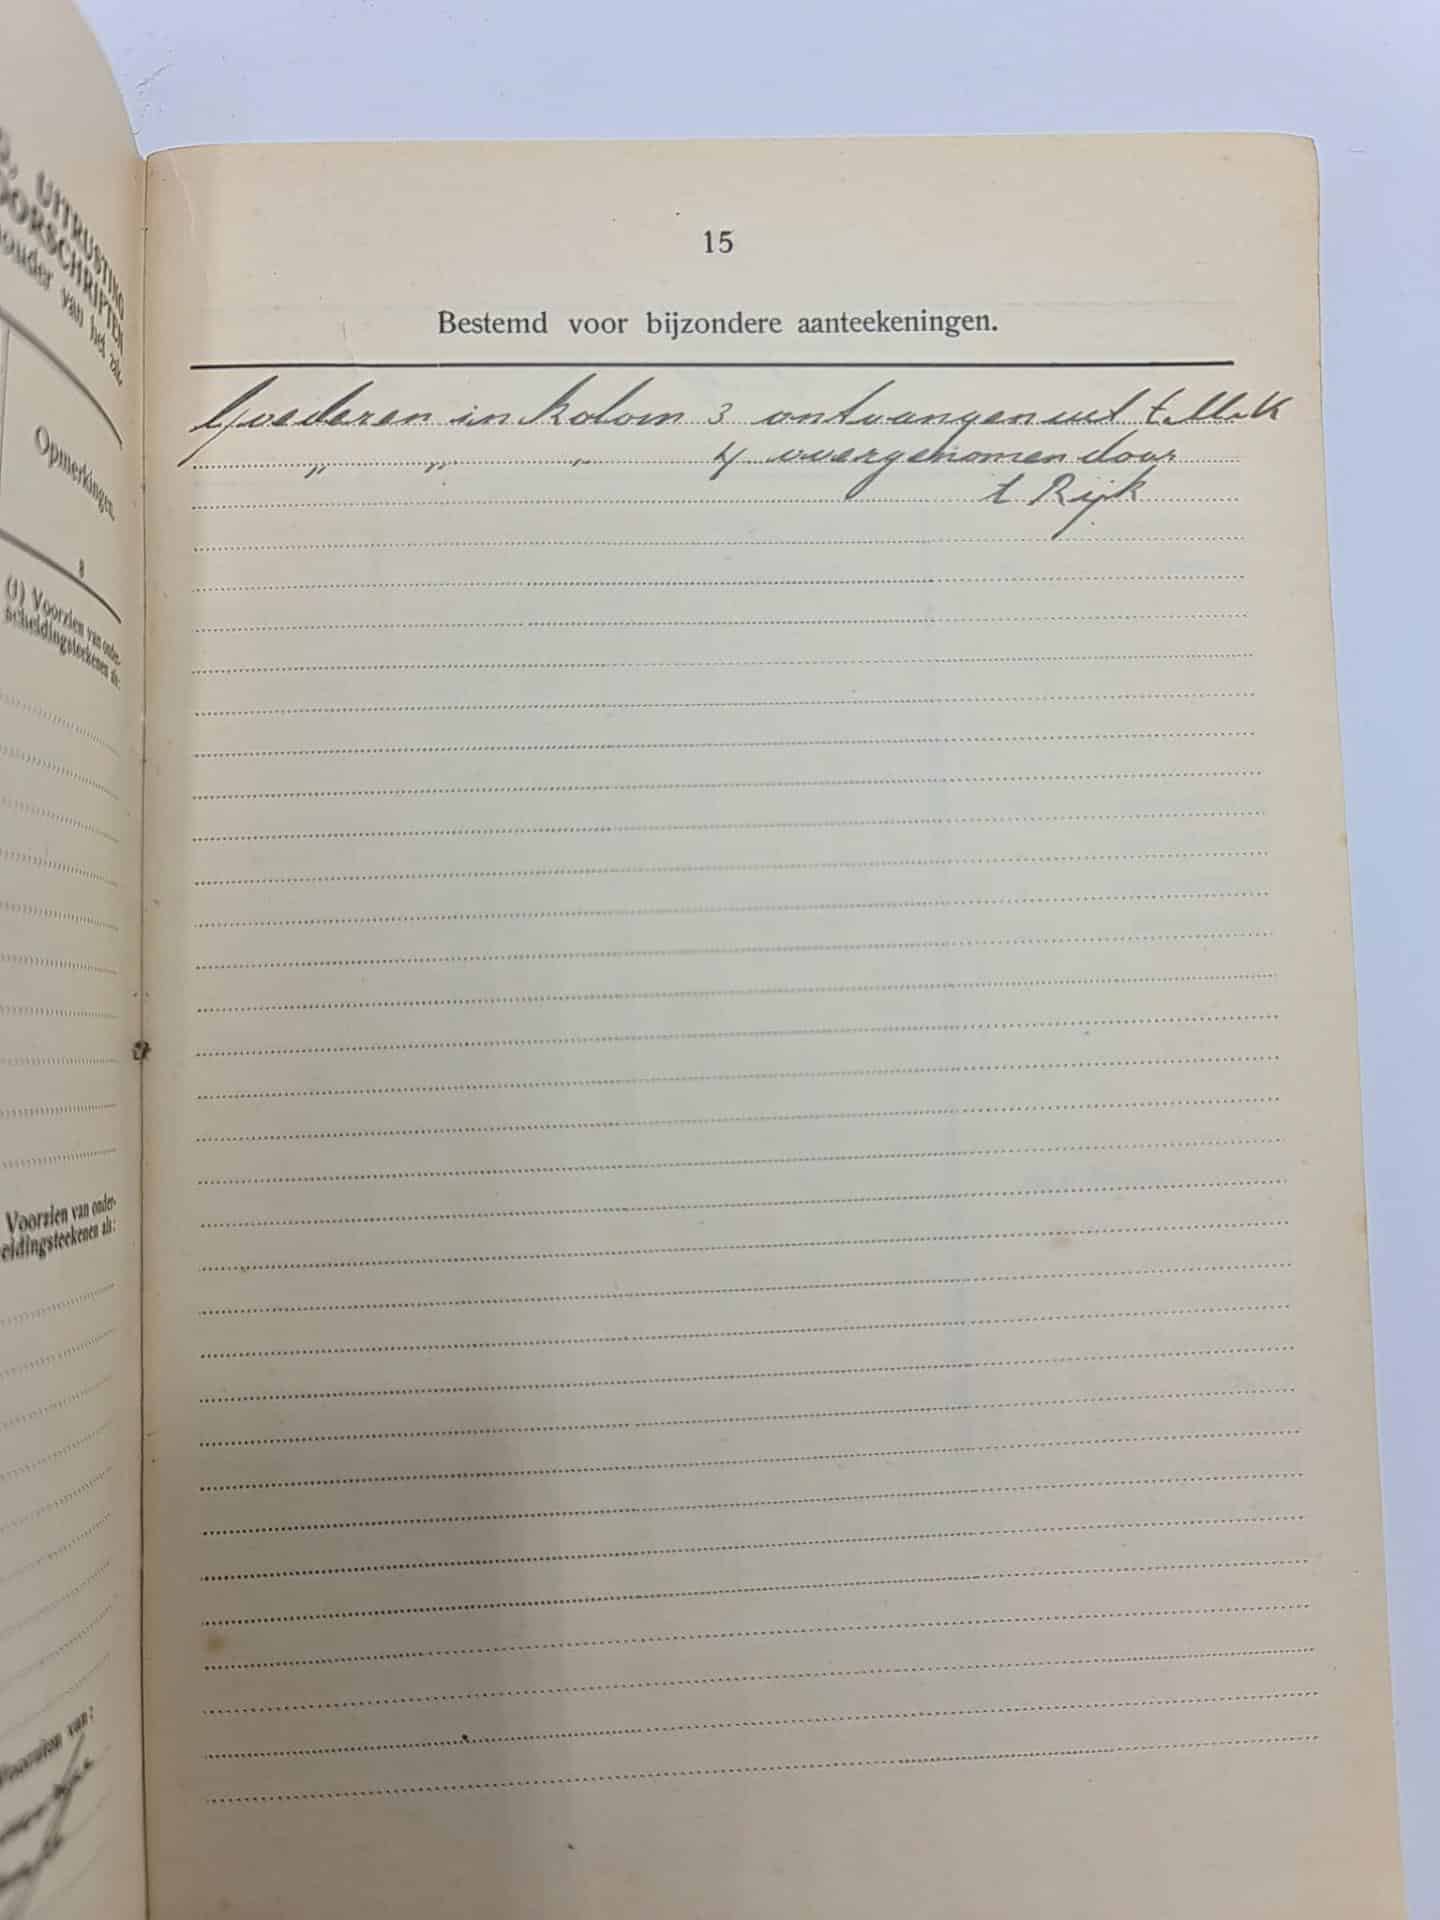 , UITRUSTING
OORSCHRIFTEN
ouder van het zie
Opmerkingen.
8
(1) Voorzien van onder-
scheidingsteekenen als:
Voorzien van onder-
eidingsteekenen als:
Voorzien van:
15
Bestemd voor bijzondere aanteekeningen.
Goederen in kolom 3 ontvangen uit t. M.K
" " " 4 overgenomen door
t Rijk